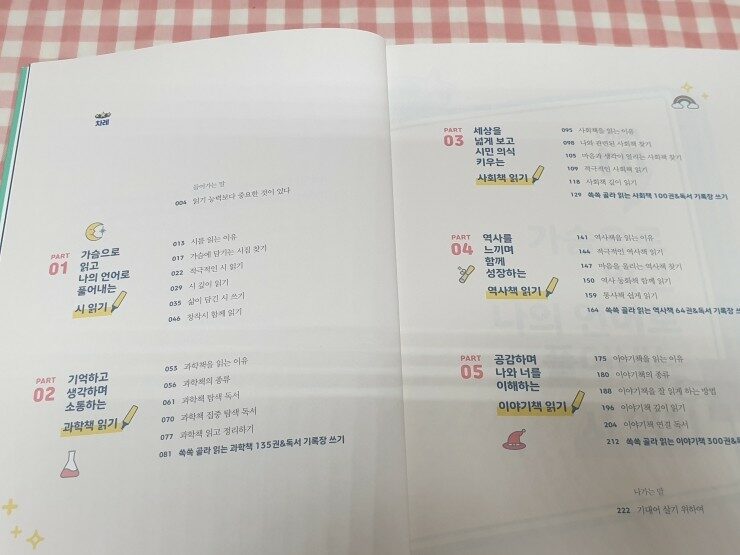 차례
들어가는 말
004 읽기 능력보다 중요한 것이 있다
PART 01
가슴으로
읽고
나의 언어로
풀어내는
시 읽기
013 시를 읽는 이유
017 가슴에 담기는 시집 찾기
022 적극적인 시 읽기
029 시 깊이 읽기
035 삶이 담긴 시 쓰기
046 창작시 함께 읽기
PART 02
기억하고
생각하며
소통하는
과학책 읽기
053 과학책을 읽는 이유
056 과학책의 종류
061 과학책 탐색 독서
070 과학책 집중 탐색 독서
077 과학책 읽고 정리하기
081 쏙쏙 골라 읽는 과학책 135권&독서 기록장 쓰기
PART 03
세상을
넓게 보고
시민 의식
키우는
사회책 읽기
095 사회책을 읽는 이유
098 나와 관련된 사회책 찾기
105 마음과 생각이 열리는 사회책 찾기
109 적극적인 사회책 읽기
118 사회책 깊이 읽기
129 쏙쏙 골라 읽는 사회책 100권&독서 기록장 쓰기
PART 04
역사를
느끼며
함께
성장하는
역사책 읽기
141 역사책을 읽는 이유
144 적극적인 역사책 읽기
147 마음을 울리는 역사책 찾기
150 역사 동화책 함께 읽기
159 통사책 쉽게 읽기
164 쏙쏙 골라 읽는 역사책 64권&독서 기록장 쓰
PART 05
공감하며
나와 너를
이해하는
이야기책 읽기
175 이야기책을 읽는 이유
180 이야기책의 종류
188 이야기책을 잘 읽게 하는 방법
196 이야기책 깊이 읽기
204 이야기책 연결 독서
212 쏙쏙 골라 읽는 이야기책 300권&독
나가는 말
222 기대어 살기 위하여